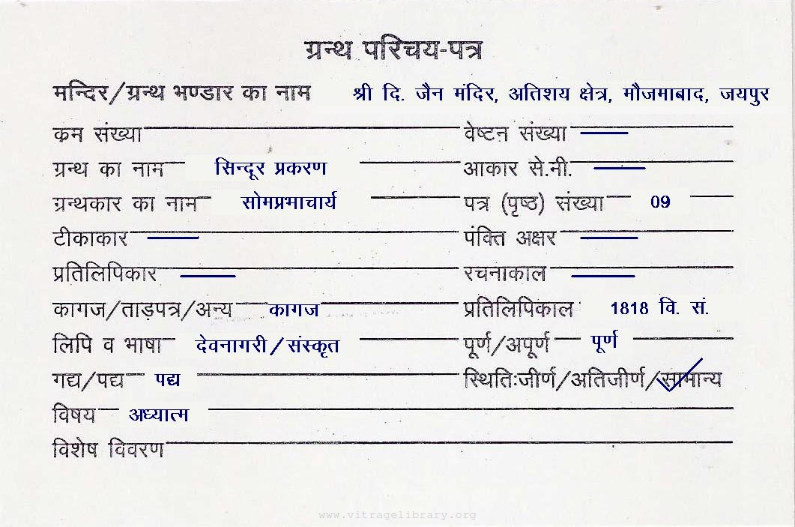 ग्रन्थ परिचय-पत्र
मन्दिर/ग्रन्थ भण्डार का नाम श्री दि. जैन मंदिर, अतिशय क्षेत्र, मौजमाबाद, जयपुर
कम संख्या वेष्टन संख्या
ग्रन्थ का नाम सिन्दूर प्रकरण आकार से.मी.
ग्रन्थकार का नाम सोमप्रमाचार्य पत्र (पृष्ठ) संख्या 09
टीकाकार पंक्ति अक्षर
प्रतिलिपिकार रचनाकाल
कागज/ताड़पत्र/अन्य कागज प्रतिलिपिकाल 1818 वि. सं.
लिपि व भाषा देवनागरी/संस्कृत पूर्ण/अपूर्ण पूर्ण
गद्य/पद्य पद्य स्थितिःजीर्ण/अतिजीर्ण/सामान्य
विषय अध्यात्म
विशेष विवरण
www.vitragelibrary.org